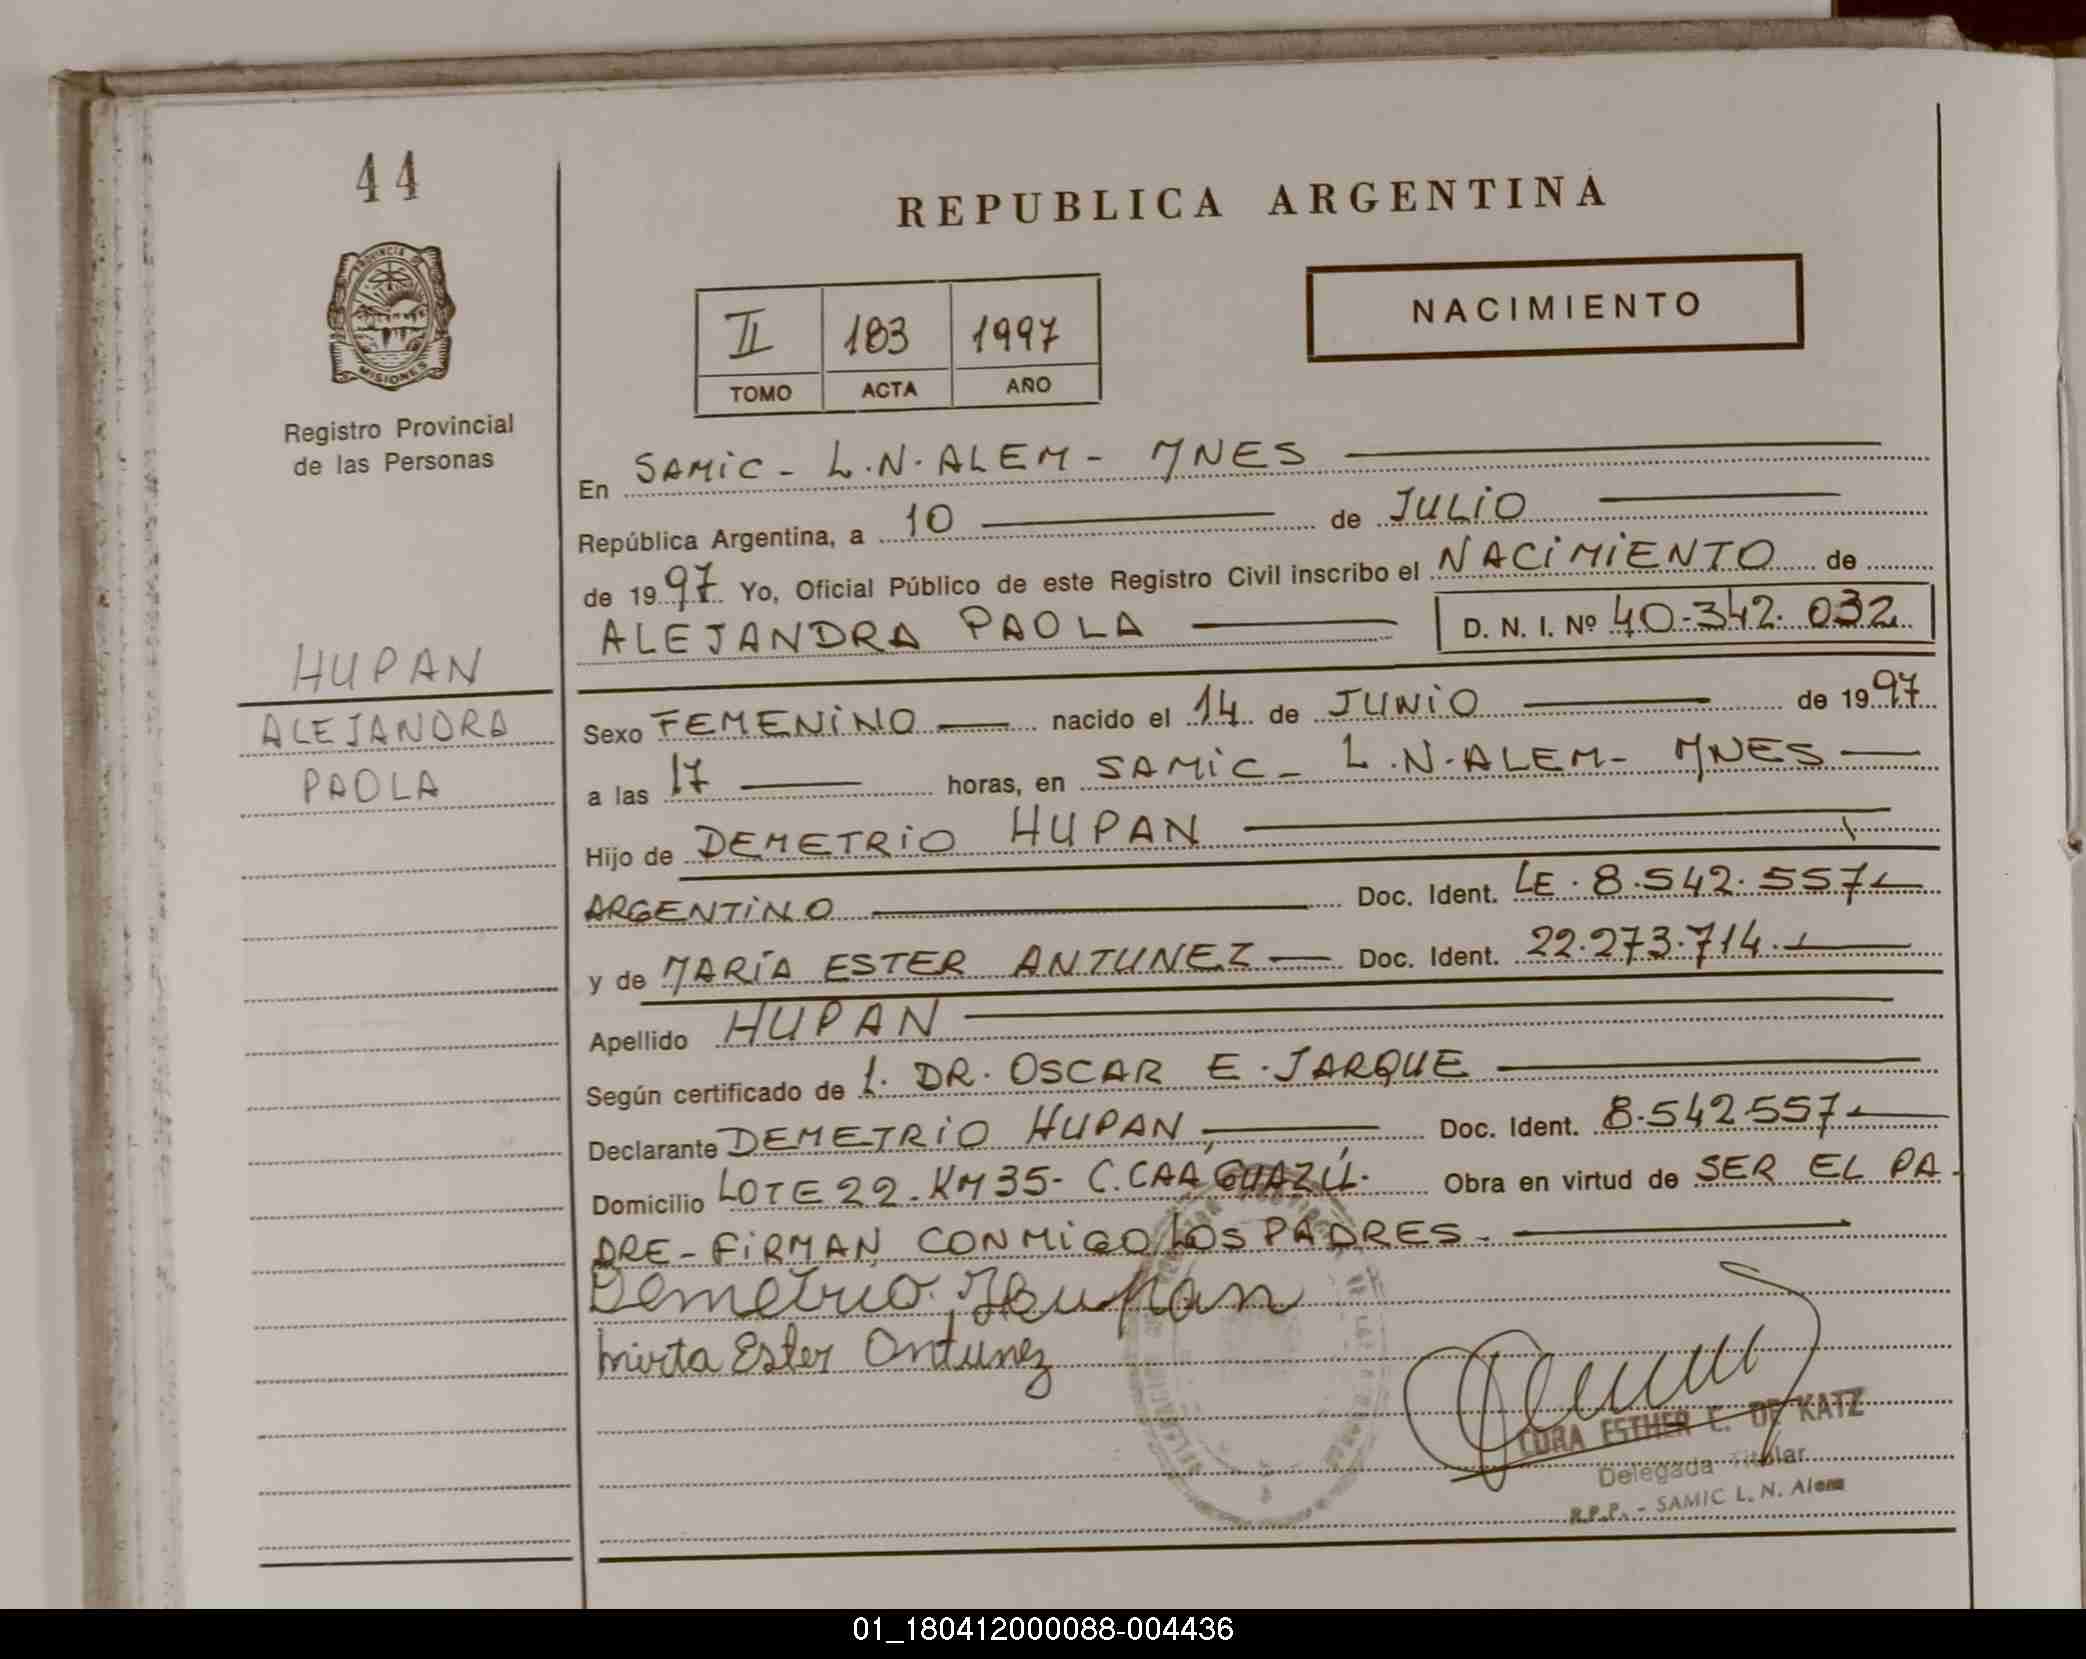 44
REPUBLICA ARGENTINA
PROVINCIA DE
MISIONES
Registro Provincial
de las Personas
II 183 1997
TOMO ACTA AÑO
NACIMIENTO
En SAMIC - L.N. ALEM - MNES
República Argentina, a 10 de JULIO
de 1997 Yo, Oficial Público de este Registro Civil inscribo el NACIMIENTO de
ALEJANDRA PAOLA D. N. I. Nº 40.342.032
HUPAN
ALEJANDRA
PAOLA
Sexo FEMENINO nacido el 14 de JUNIO de 1997
a las 17 horas, en SAMIC - L.N. ALEM - MNES
Hijo de DEMETRIO HUPAN
ARGENTINO Doc. Ident. LE. 8.542.557
y de MARÍA ESTER ANTUNEZ Doc. Ident. 22.273.714.
Apellido HUPAN
Según certificado de L. DR. OSCAR E. JARQUE
Declarante DEMETRIO HUPAN, Doc. Ident. 8.542.557
Domicilio LOTE 22 - KM 35 - C. CAÁ GUAZÚ. Obra en virtud de SER EL PA-
DRE - FIRMAN CONMIGO LOS PADRES.
Demetrio Hupan
Mirta Ester Antunez
LORA ESTHER C. DE KATZ
Delegada Titular
R.P.P. - SAMIC L. N. Alem
01_180412000088-004436